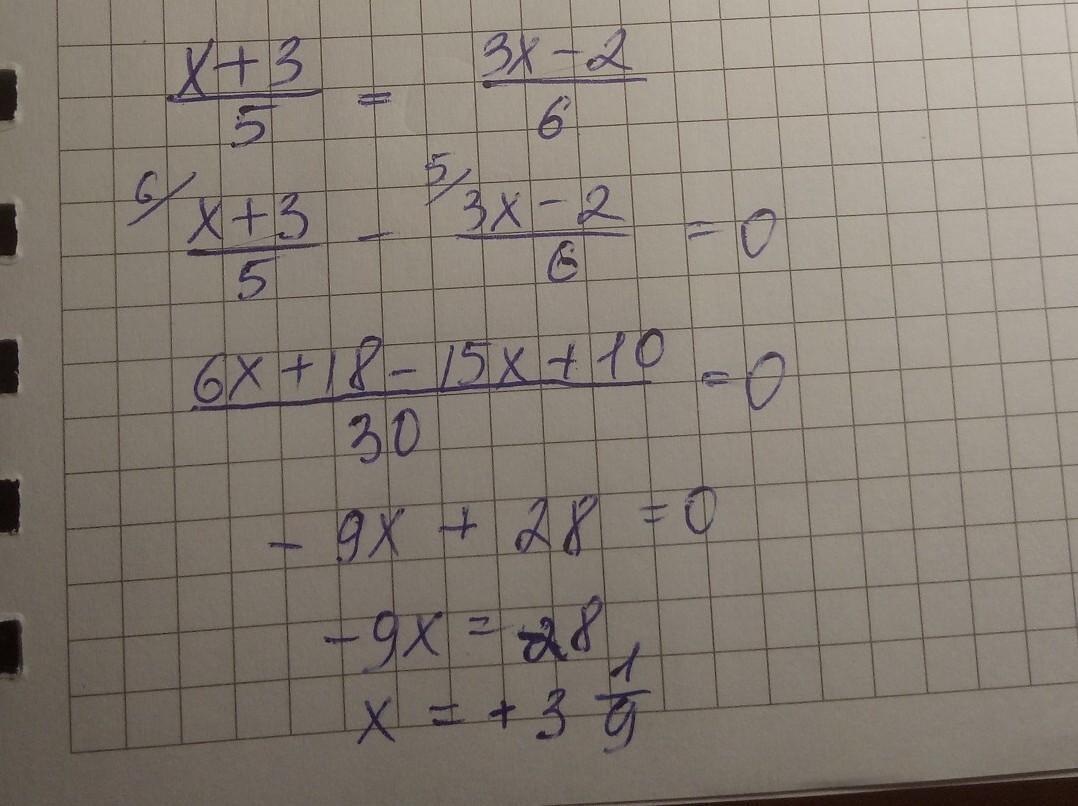 x+3/5 = 3x-2/6
6/ x+3/5 - 5/ 3x-2/6 = 0
6x+18-15x+10/30 = 0
-9x + 28 = 0
-9x = -28
x = +3 1/9